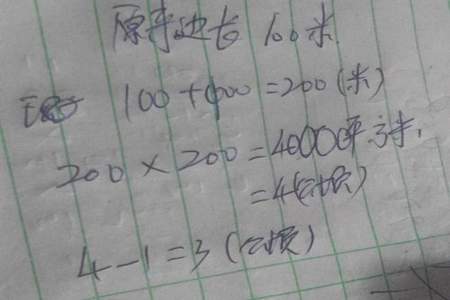 原来边长 100米
100+100=200(米)
200×200=40000平方米
=4(公顷)
4-1=3(公顷)